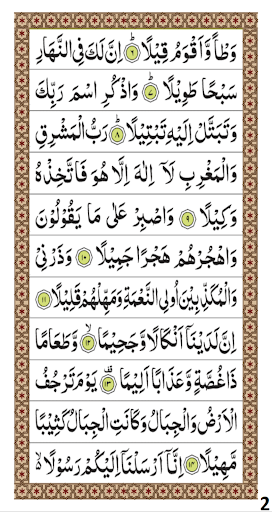 وَطْاً وَّاَقْوَمُ قِيْلًا ؕ﴿۶﴾ اِنَّ لَكَ فِى النَّهَارِ
سَبْحًا طَوِيْلًا ؕ﴿۷﴾ وَاذْكُرِ اسْمَ رَبِّكَ
وَتَبَتَّلْ اِلَيْهِ تَبْتِيْلًا ؕ﴿۸﴾ رَبُّ الْمَشْرِقِ
وَالْمَغْرِبِ لَاۤ اِلٰهَ اِلَّا هُوَ فَاتَّخِذْهُ
وَكِيْلًا ﴿۹﴾ وَاصْبِرْ عَلٰى مَا يَقُوْلُوْنَ
وَاهْجُرْهُمْ هَجْرًا جَمِيْلًا ﴿۱۰﴾ وَذَرْنِىْ
وَالْمُكَذِّبِيْنَ اُولِى النَّعْمَةِ وَمَهِّلْهُمْ قَلِيْلًا ﴿۱۱﴾
اِنَّ لَدَيْنَاۤ اَنْكَالًا وَّجَحِيْمًا ۙ﴿۱۲﴾ وَّطَعَامًا
ذَا غُصَّةٍ وَّعَذَابًا اَلِيْمًا ۗ﴿۱۳﴾ يَوْمَ تَرْجُفُ
الْاَرْضُ وَالْجِبَالُ وَكَانَتِ الْجِبَالُ كَثِيْبًا
مَّهِيْلًا ﴿۱۴﴾ اِنَّاۤ اَرْسَلْنَاۤ اِلَيْكُمْ رَسُوْلًا ۙ۬
2